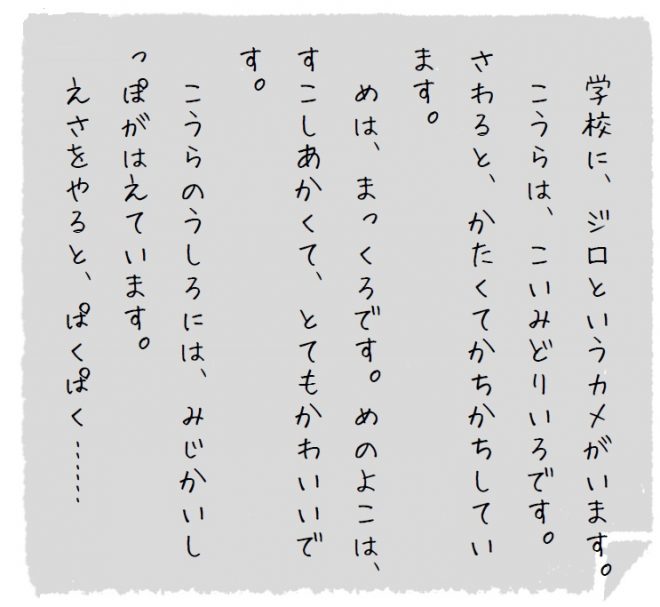 学校に、ジロというカメがいます。
こうらは、こいみどりいろです。
さわると、かたくてかちかちしてい
ます。
めは、まっくろです。めのよこは、
すこしあかくて、とてもかわいいで
す。
こうらのうしろには、みじかいし
っぽがはえています。
えさをやると、ぱくぱく……